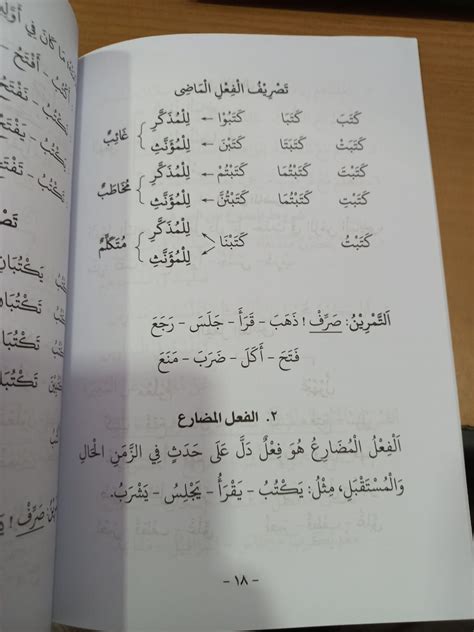 تَصْرِيْفُ الْفِعْلِ الْمَاضِى
كَتَبَ كَتَبَا كَتَبُوْا ← لِلْمُذَكَّرِ غَائِبٌ
كَتَبَتْ كَتَبَتَا كَتَبْنَ ← لِلْمُؤَنَّثِ
كَتَبْتَ كَتَبْتُمَا كَتَبْتُمْ ← لِلْمُذَكَّرِ مُخَاطَبٌ
كَتَبْتِ كَتَبْتُمَا كَتَبْتُنَّ ← لِلْمُؤَنَّثِ
كَتَبْتُ كَتَبْنَا لِلْمُذَكَّرِ مُتَكَلِّمٌ
لِلْمُؤَنَّثِ
اَلتَّمْرِيْنُ: صَرِّفْ! ذَهَبَ - قَرَأَ - جَلَسَ - رَجَعَ
فَتَحَ - أَكَلَ - ضَرَبَ - مَنَعَ
٢. الفعل المضارع
اَلْفِعْلُ الْمُضَارِعُ هُوَ فِعْلٌ دَلَّ عَلَى حَدَثٍ فِي الزَّمَنِ الْحَالِ
وَالْمُسْتَقْبَلِ، مِثْلُ: يَكْتُبُ - يَقْرَأُ - يَجْلِسُ - يَشْرَبُ.
- ١٨ -
مَا كَانَ فِي أَوَّلِهِ
أَكْتُبُ - أَفْتَحُ
نَكْتُبُ - نَفْتَحُ
يَكْتُبُ - يَفْتَحُ
تَكْتُبُ - تَفْتَحُ
يَكْتُبَانِ
تَكْتُبَانِ
صَرِّفْ!